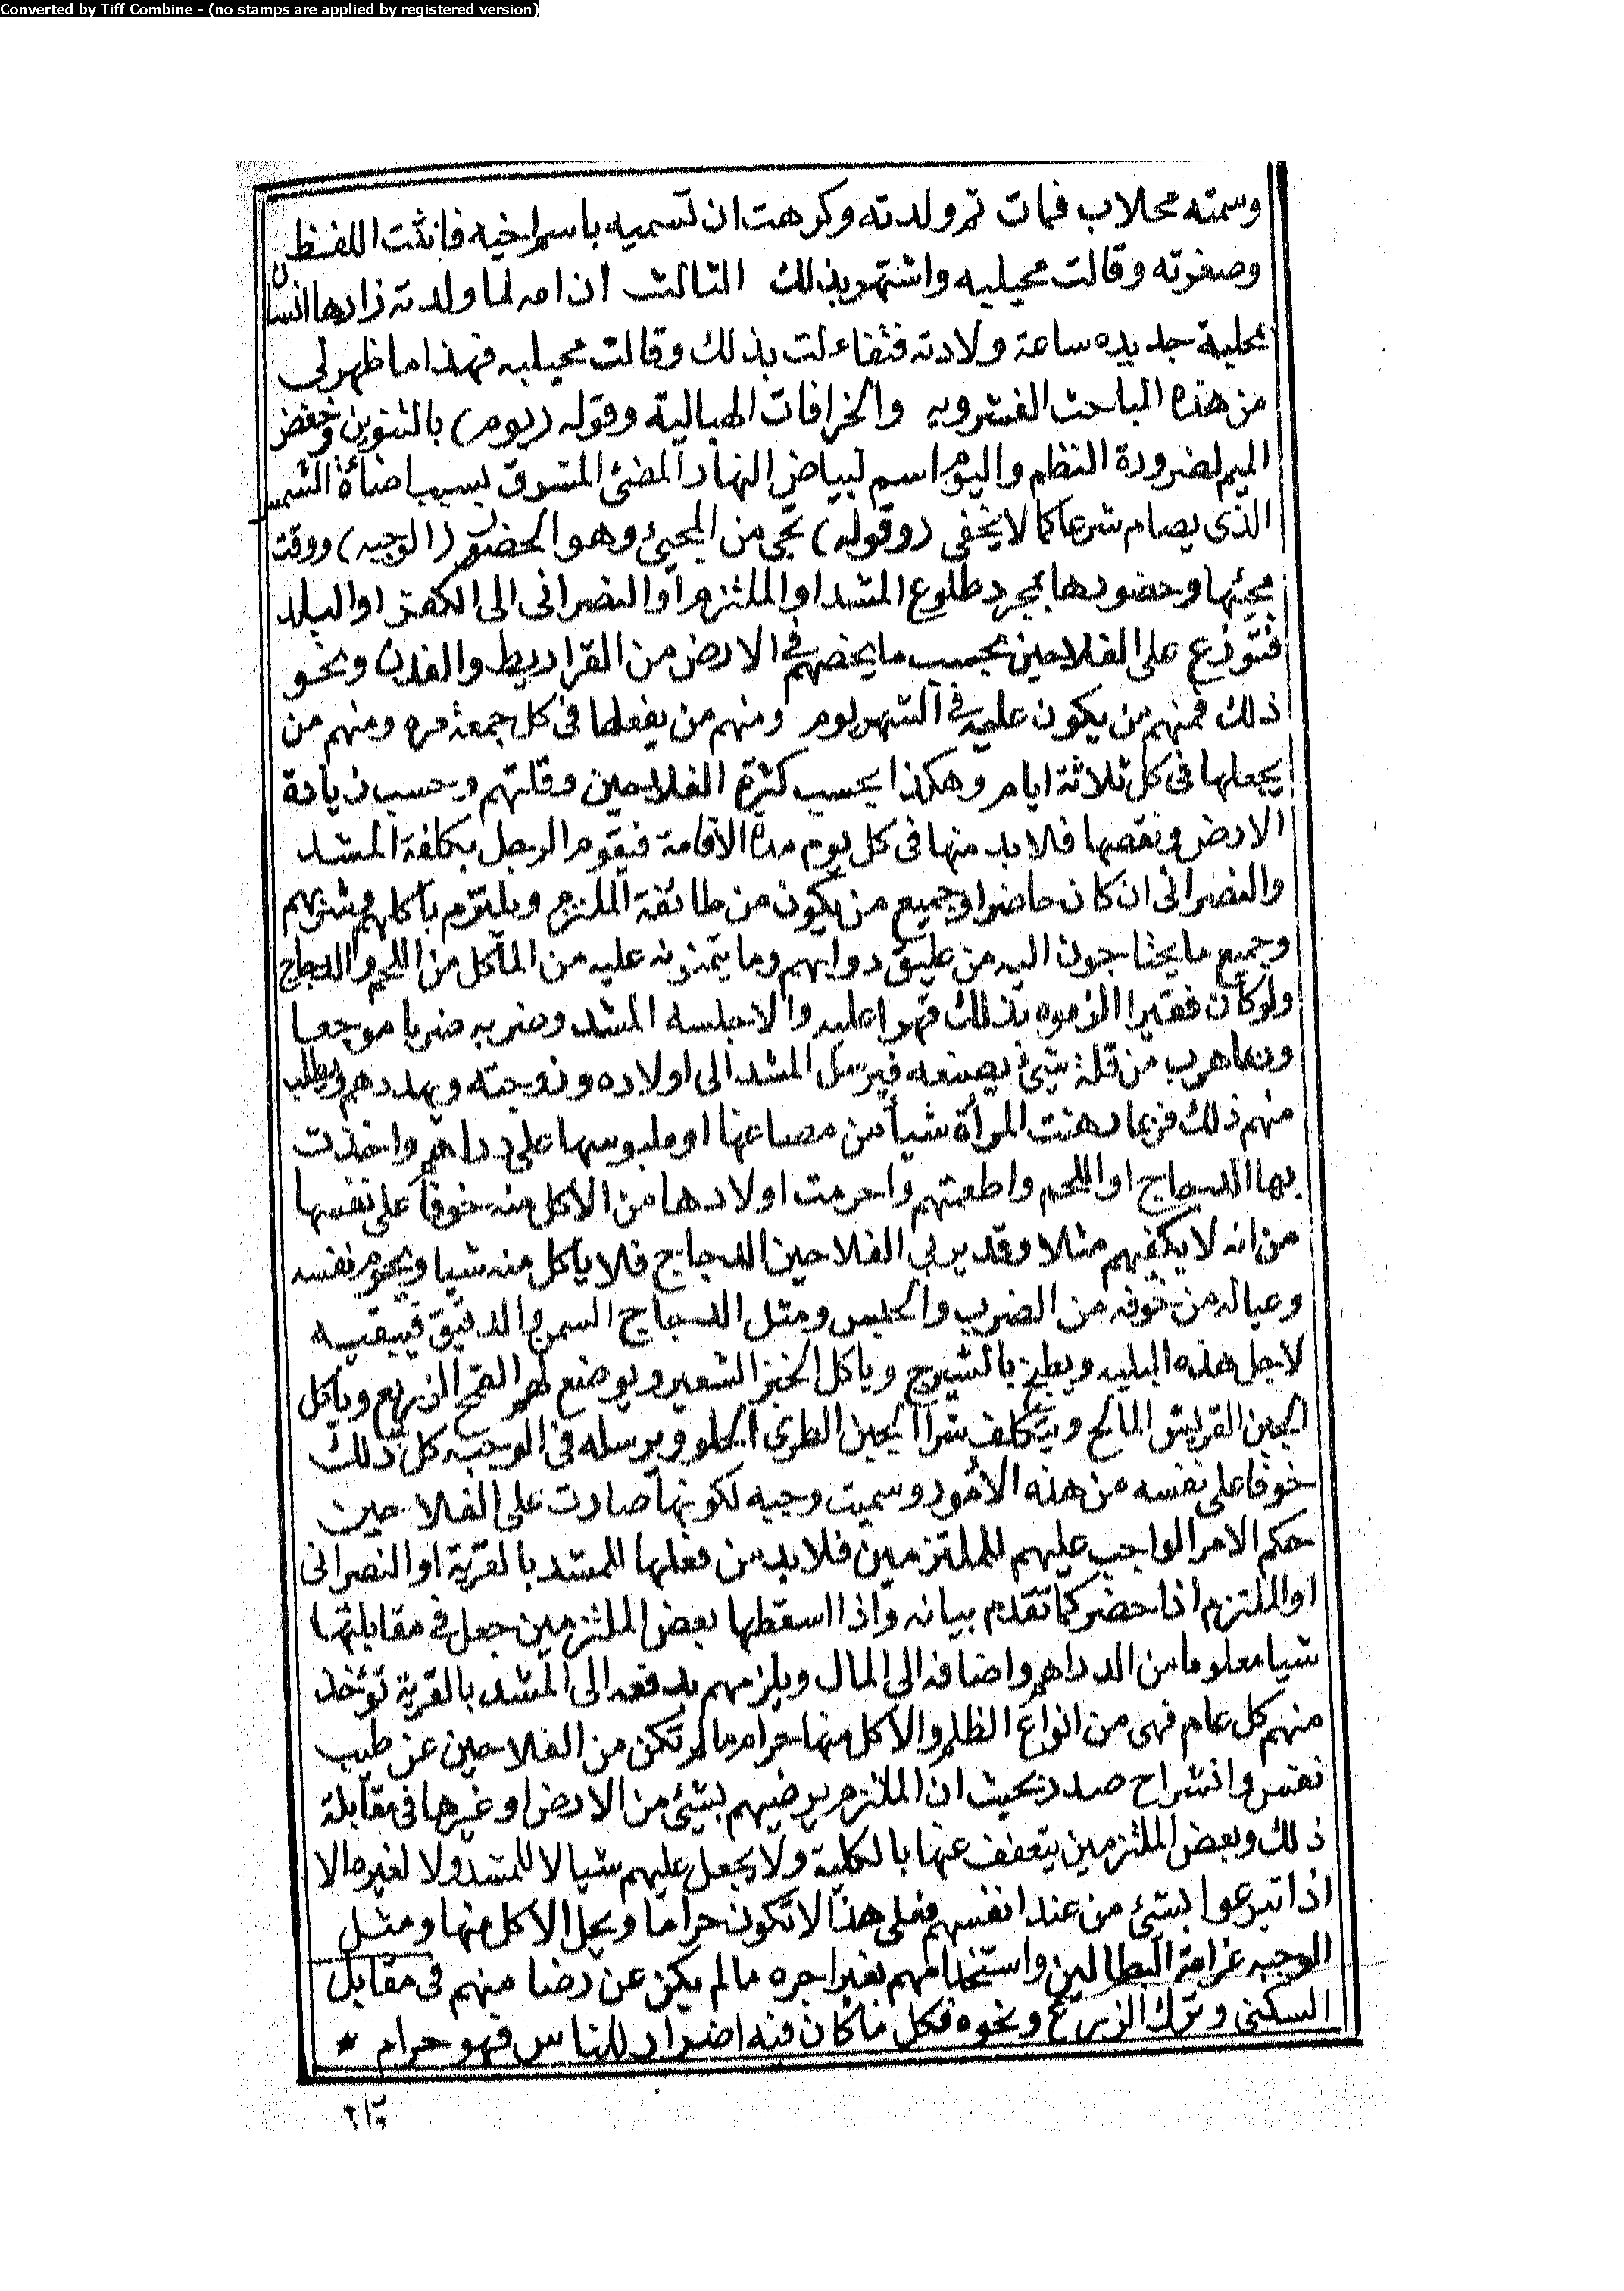 Converted by Tiff Combine - (no stamps are applied by registered version)
وسمته محلاب فمات ثم ولدته وكرهت ان تسميه باسم اخيه فانثت اللفظ
وصغرته وقالت محيلبه واشتهر بذلك الثالث ان امه لما ولدته زارها انسان
بحلبة جديده ساعة ولادته فتفاءلت بذلك وقالت محيلبه فهذا ما ظهر لى
من هذه المباحث الفشرويه والخرافات الهبالية وقوله (يوم) بالتنوين وخفض
الميم لضرورة النظم واليوم اسم لبياض النهار المضئ المشرق بسبب اضاءة الشمس
الذى يصام شرعا كما لا يخفى (وقوله) تجى من المجيئ وهو الحضور (الوجبه) ووقت
مجيئها وحضورها بمجرد طلوع المشد او الملتزم او النصرانى الى الكفر او البلد
فتوزع على الفلاحين بحسب ما يخصهم فى الارض من القراريط والفدن ونحو
ذلك فمنهم من يكون عليه فى الشهر يوم ومنهم من يفعلها فى كل جمعة مره ومنهم من
يجعلها فى كل ثلاثة ايام وهكذا بحسب كثرة الفلاحين وقلتهم وحسب زيادة
الارض ونقصها فلا بد منها فى كل يوم مدة الاقامة فيقوم الرجل بكلفة المشد
والنصرانى ان كان حاضرا وجميع من يكون من طائفة الملتزم ويلتزم باكلهم وشربهم
وجميع ما يحتاجون اليه من عليق دوابهم وما يتمنونه عليه من الماكل من اللحم والدجاج
ولو كان فقيرا الزموه بذلك قهرا عليه والا حبسه المشد وضربه ضربا موجعا
وربما هرب من قلة شيئ يصنعه فيرسل المشد الى اولاده وزوجته ويهددهم ويطلب
منهم ذلك فربما رهنت المرأة شيأ من مصاغها او ملبوسها على دراهم واخذت
بها الدجاج او اللحم واطعمتهم واحرمت اولادها من الاكل منه خوفا على نفسها
من انه لا يكفيهم مثلا وقد يربى الفلاحين الدجاج فلا ياكل منه شيا ويحرم نفسه
وعياله من خوفه من الضرب والحبس ومثل الدجاج السمن والدقيق فيبقيه
لاجل هذه البليه ويطبخ بالشيرج وياكل الخبز الشعير ويوضع لهم القمح الزريع وياكل
الجبن القريش المالح ويتكلف شراا لجبن الطرى الحلو ويرسله فى الوجبه كل ذلك
خوفا على نفسه من هذه الامور وسميت وجبه لكونها صارت على الفلاحين
حكم الامر الواجب عليهم للملتزمين فلا بد من فعلها للمشد بالقرية او النصرانى
او الملتزم اذا حضر كما تقدم بيانه واذا اسقطها بعض الملتزمين جعل فى مقابلتها
شيا معلوما من الدراهم واضافه الى المال ويلزمهم بدفعه الى المشد بالقرية تؤخذ
منهم كل عام فهى من انواع الظلم والاكل منها حرام ما لم تكن من الفلاحين عن طيب
نفس وانشراح صدر بحيث ان الملتزم يرضيهم بشئ من الارض او غيرها فى مقابلة
ذلك وبعض الملتزمين يتعفف عنها بالكلية ولا يجعل عليهم شيا لا للمشد ولا لغيره الا
اذا تبرعوا بشئ من عند انفسهم فعلى هذا لا تكون حراما ويحل الاكل منها ومثل
الوجبه غرامة البطالين واستخدامهم بغير اجره ما لم يكن عن رضا منهم فى مقابل
السكنى وترك الزريع ونحوه فكل ما كان فيه اضرار للناس فهو حرام *